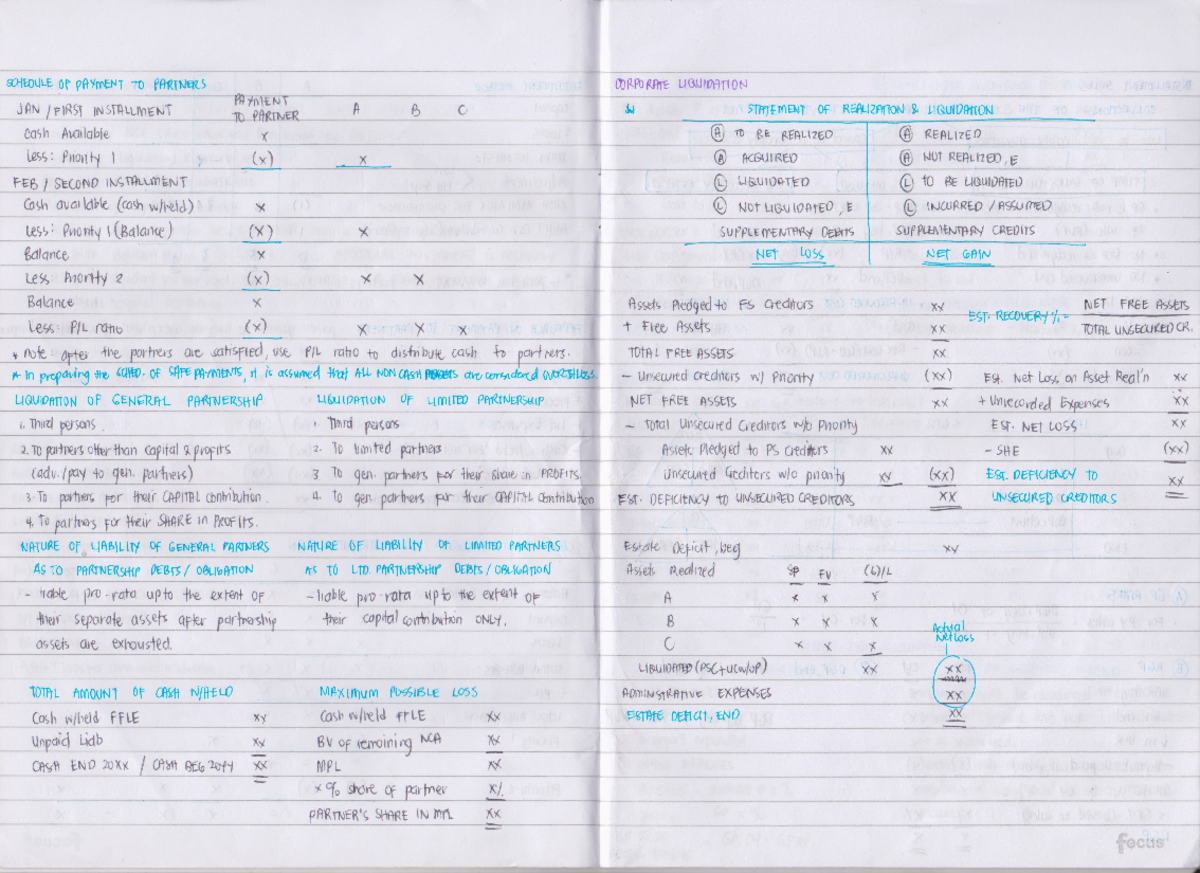 SCHEDULE OF PAYMENT TO PARTNERS
JAN / FIRST INSTALLMENT PAYMENT TO PARTNER A B C
Cash Available x
Less: Priority 1 (x) x
FEB / SECOND INSTALLMENT
Cash available (cash w/held) x
Less: Priority 1 (Balance) (x) x
Balance x
Less: Priority 2 (x) x x
Balance x
Less: P/L ratio (x) x x
* Note after the partners are satisfied, use P/L ratio to distribute cash to partners.
* In preparing the SCHED. OF SAFE PAYMENTS, it is assumed that ALL NON CASH are considered
LIQUIDATION OF GENERAL PARTNERSHIP
1. Third persons.
2. To partners other than capital & profits
(adv./pay to gen. partners)
3. To partners for their CAPITAL contribution.
4. To partners for their SHARE IN PROFITS.
LIQUIDATION OF LIMITED PARTNERSHIP
1. Third persons
2. To limited partners
3 To gen. partners for their share in PROFITS.
4. To gen. partners for their CAPITAL contribution
NATURE OF LIABILITY OF GENERAL PARTNERS
AS TO PARTNERSHIP DEBTS / OBLIGATION
- liable pro-rata up to the extent of
their separate assets after partnership
assets are exhausted.
NATURE OF LIABILITY OF LIMITED PARTNERS
AS TO LTD. PARTNERSHIP DEBTS / OBLIGATION
- liable pro-rata up to the extent of
their capital contribution ONLY.
TOTAL AMOUNT OF CASH W/HELD
Cash w/held FFLE xx
Unpaid Liab xx
CASH END 20XX / CASH BEG 20YY xx
MAXIMUM POSSIBLE LOSS
Cash w/held FFLE xx
BV of remaining NCA xx
MPL xx
x % share of partner x%
PARTNER'S SHARE IN MPL xx
CORPORATE LIQUIDATION
STATEMENT OF REALIZATION & LIQUIDATION
A TO BE REALIZED A REALIZED
A ACQUIRED A NOT REALIZED, E
L LIQUIDATED L TO BE LIQUIDATED
L NOT LIQUIDATED, E L INCURRED / ASSUMED
SUPPLEMENTARY DEBITS SUPPLEMENTARY CREDITS
NET LOSS NET GAIN
Assets Pledged to FS Creditors xx
+ Free Assets xx
TOTAL FREE ASSETS xx
- Unsecured Creditors w/ Priority (xx)
NET FREE ASSETS xx
- Total Unsecured Creditors w/o Priority
Assets Pledged to PS Creditors xx
Unsecured Creditors w/o priority xx (xx)
EST. DEFICIENCY TO UNSECURED CREDITORS xx
EST. RECOVERY % = NET FREE ASSETS
TOTAL UNSECURED CR.
Est. Net Loss on Asset Real'n xx
+ Unrecorded Expenses xx
EST. NET LOSS xx
- SHE (xx)
EST. DEFICIENCY TO
UNSECURED CREDITORS xx
Estate Deficit, beg xx
Assets Realized SP FV (G)/L
A x x x
B x x x
C x x x
LIQUIDATED (PSC + UCw/oP) xx xx
ADMINISTRATIVE EXPENSES xx
ESTATE DEFICIT, END xx
Actual
Net Loss
focus